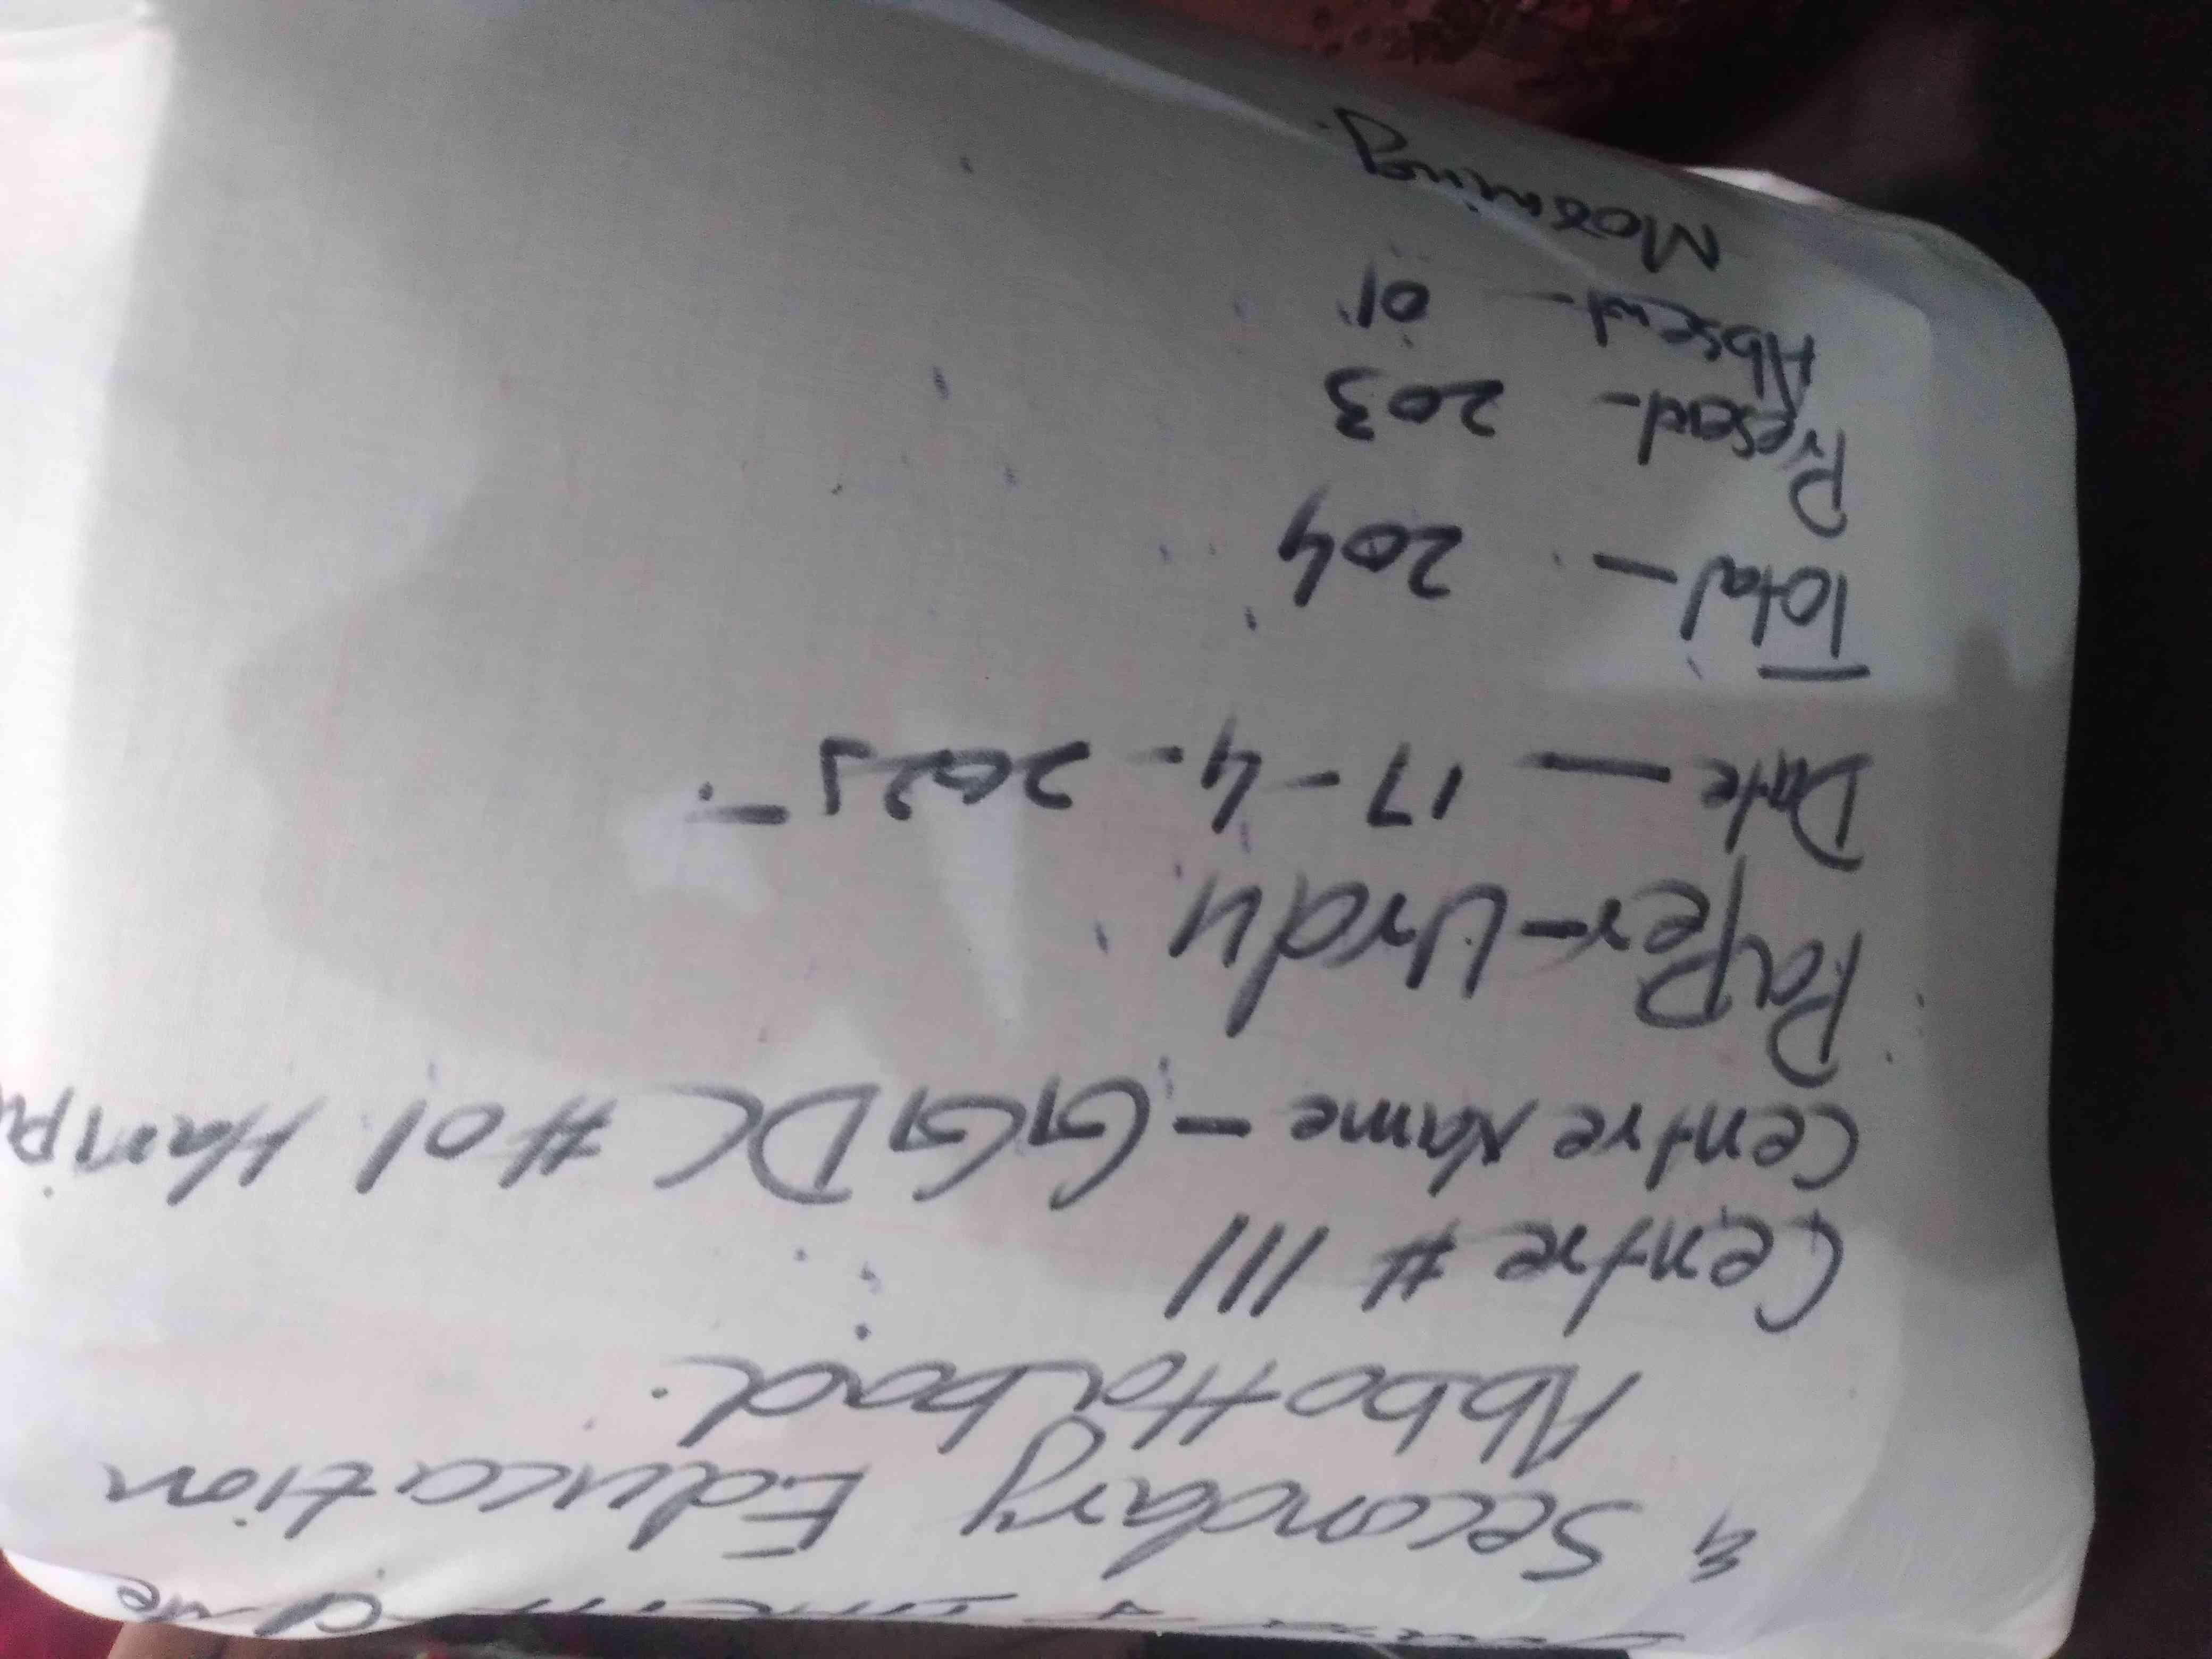 & Secondary Education
Abbottabad.
Centre # 111
Centre Name - GGDC #01 Harip
Paper - Urdu
Date - 17-4-2025
Total - 204
Present - 203
Absent - 01
Morning.